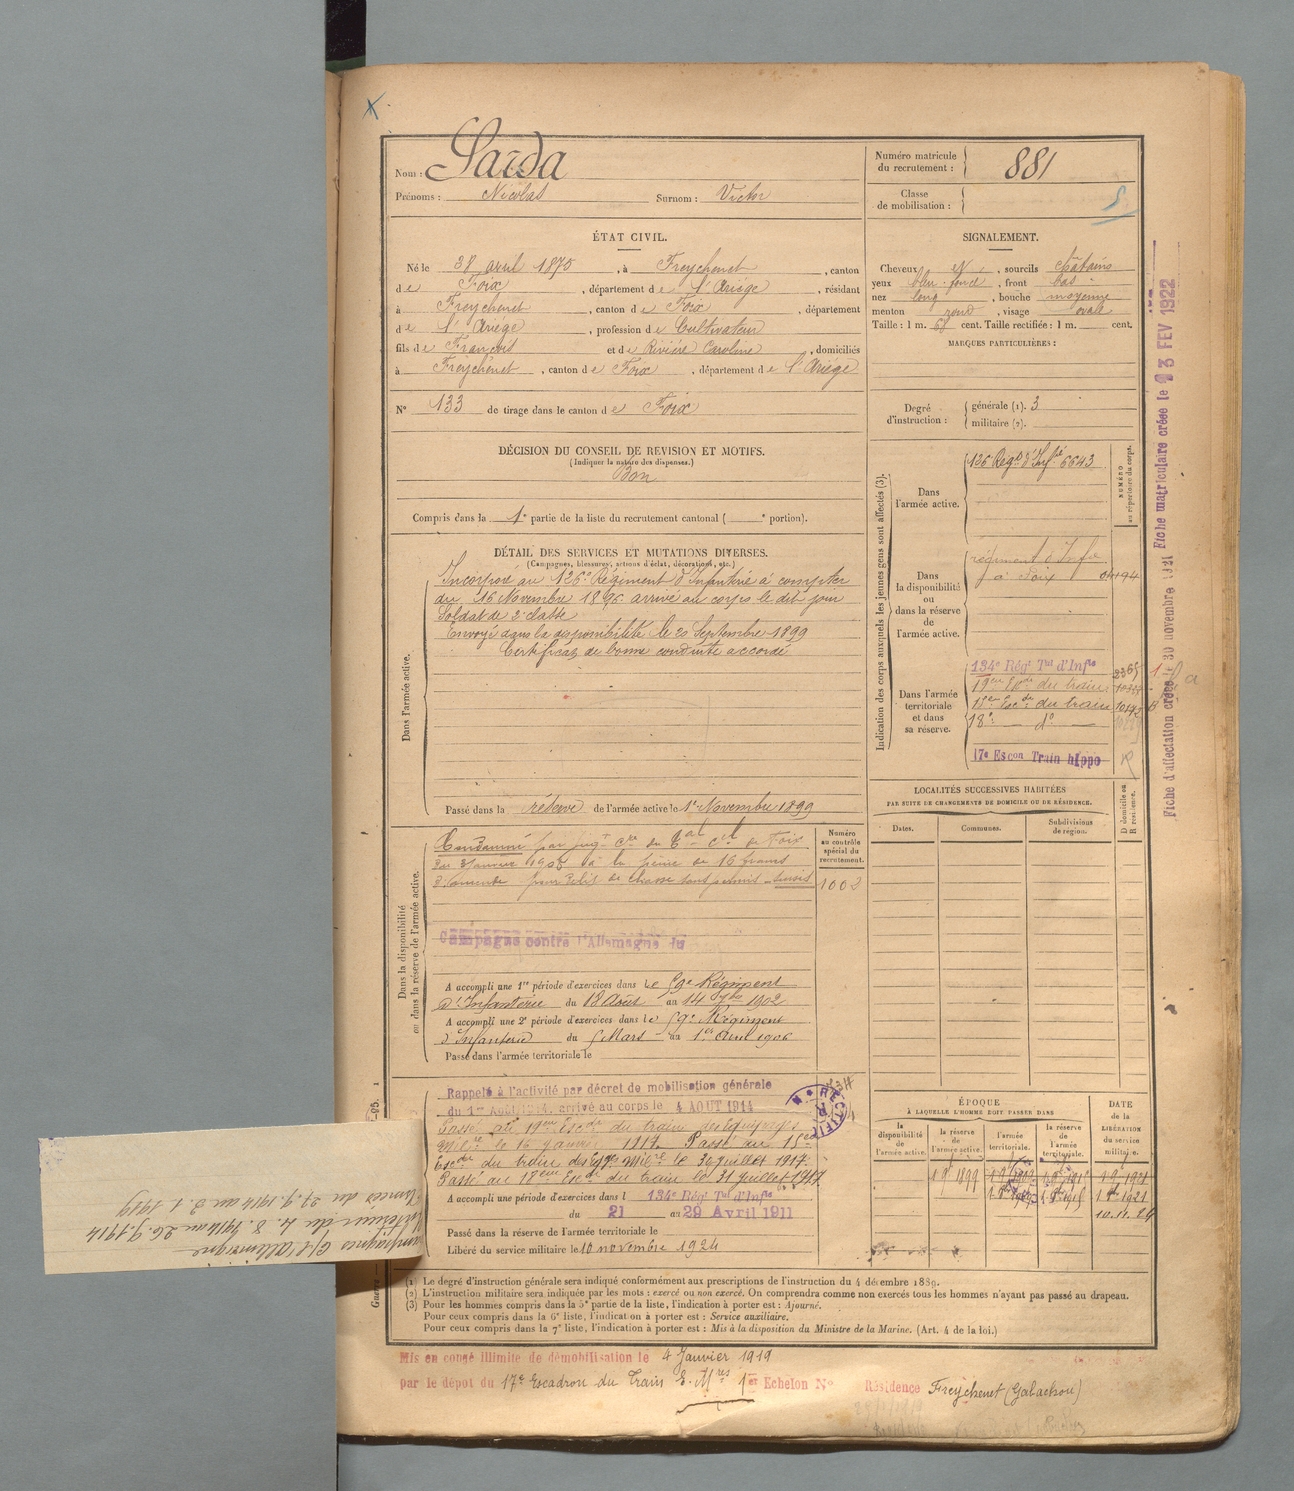 Nom : Sarda
Prénoms : Nicolas Surnom : Victor
Numéro matricule du recrutement : 881
Classe de mobilisation :
ÉTAT CIVIL.
Né le 28 avril 1875, à Freychenet, canton
de Foix, département de l'Ariége, résidant
à Freychenet, canton de Foix, département
de l'Ariége, profession de Cultivateur
fils de François et de Rivière Caroline, domiciliés
à Freychenet, canton de Foix, département de l'Ariége
N° 133 de tirage dans le canton de Foix
SIGNALEMENT.
Cheveux et, sourcils châtains
yeux bleu foncé, front bas
nez long, bouche moyenne
menton rond, visage ovale
Taille : 1 m. 68 cent. Taille rectifiée : 1 m. cent.
MARQUES PARTICULIÈRES :
Degré d'instruction : générale (1). 3
militaire (2).
DÉCISION DU CONSEIL DE REVISION ET MOTIFS.
(Indiquer la nature des dispenses.)
Bon
Compris dans la 1e partie de la liste du recrutement cantonal ( e portion).
DÉTAIL DES SERVICES ET MUTATIONS DIVERSES.
(Campagnes, blessures, actions d'éclat, décorations, etc.)
Dans l'armée active.
Incorporé au 126e Régiment d'Infanterie à compter
du 16 Novembre 1896 arrivé au corps le dit jour
Soldat de 2e classe
Envoyé dans la disponibilité le 20 Septembre 1899
Certificat de bonne conduite accordé
Passé dans la réserve de l'armée active le 1er Novembre 1899
Dans la disponibilité
ou dans la réserve de l'armée active.
Condamné par jugt du Foix
à la peine de 16 francs
d'amende pour délit de chasse sans permis
Numéro au contrôle spécial du recrutement.
1002
Campagne contre l'Allemagne du
A accompli une 1re période d'exercices dans le 59e Régiment
d'Infanterie du 18 Août au 14 7bre 1902
A accompli une 2e période d'exercices dans le 59e Régiment
d'Infanterie du 5 Mars au 1er Avril 1906
Passé dans l'armée territoriale le
Rappelé à l'activité par décret de mobilisation générale
du 1er Août 1914, arrivé au corps le 4 AOUT 1914
Passé au 19eme Escon du train des Equipages
Milres le 16 janvier 1917. Passé au 15eme
Escon du train des Eqges Milres le 30 juillet 1917.
Passé au 18eme Escon du train le 31 juillet 1917
RECTIFIC
A accompli une période d'exercices dans l 134e Régt Tal d'Infie
du 21 au 29 Avril 1911
Passé dans la réserve de l'armée territoriale le
Libéré du service militaire le 10 novembre 1924
Indication des corps auxquels les jeunes gens sont affectés (3).
NUMÉRO au répertoire du corps.
Dans l'armée active.
126 Régt d'Infie 6643
Dans la disponibilité ou dans la réserve de l'armée active.
régiment d'Infie
à Foix
Dans l'armée territoriale et dans sa réserve.
134e Régt Tal d'Infie
19eme Escon du train
15eme Escon du train
18e do
17e Escon Train hippo
LOCALITÉS SUCCESSIVES HABITÉES
PAR SUITE DE CHANGEMENTS DE DOMICILE OU DE RÉSIDENCE.
D domicile ou R résidence.
Dates. Communes. Subdivisions de région.
ÉPOQUE
À LAQUELLE L'HOMME DOIT PASSER DANS
la disponibilité de l'armée active. la réserve de l'armée active. l'armée territoriale. la réserve de l'armée territoriale.
DATE de la LIBÉRATION du service militaire.
(1) Le degré d'instruction générale sera indiqué conformément aux prescriptions de l'instruction du 4 décembre 1889.
(2) L'instruction militaire sera indiquée par les mots : exercé ou non exercé. On comprendra comme non exercés tous les hommes n'ayant pas passé au drapeau.
(3) Pour les hommes compris dans la 5e partie de la liste, l'indication à porter est : Ajourné.
Pour ceux compris dans la 6e liste, l'indication à porter est : Service auxiliaire.
Pour ceux compris dans la 7e liste, l'indication à porter est : Mis à la disposition du Ministre de la Marine. (Art. 4 de la loi.)
Mis en congé illimité de démobilisation le 4 Janvier 1919
par le dépot du 17e Escadron du Train E. Mres 1er Echelon N° Résidence Freychenet (Galachou)
Fiche d'affectation créée le 30 novembre 1921 Fiche matriculaire créée le 13 FEV 1922
Campagnes c/ l'Allemagne
Intérieur du 4.8.1914 au 26.9.1914
Armées du 27.9.1914 au 3.1.1919